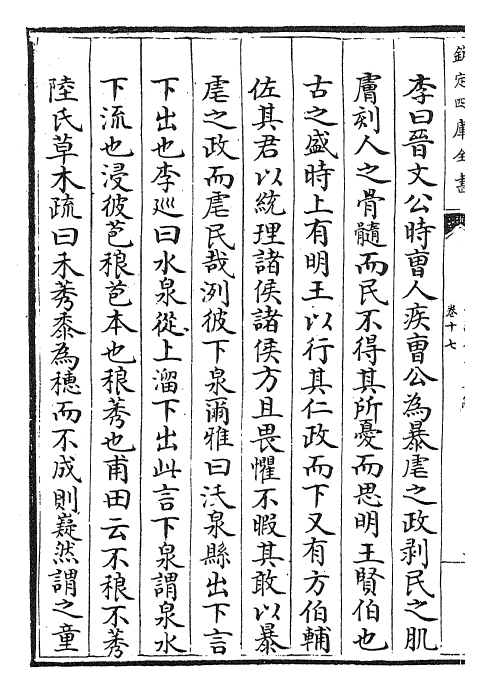 欽定四庫全書
卷十七
李曰晉文公時曹人疾曹公為暴虐之政剥民之肌
膚刻人之骨髓而民不得其所憂而思明王賢伯也
古之盛時上有明王以行其仁政而下又有方伯輔
佐其君以統理諸侯諸侯方且畏懼不暇其敢以暴
虐之政而虐民哉洌彼下泉爾雅曰沃泉縣出下言
下出也李廵曰水泉從上溜下出此言下泉謂泉水
下流也浸彼苞稂苞本也稂莠也甫田云不稂不莠
陸氏草木疏曰禾莠黍為穗而不成則嶷然謂之童